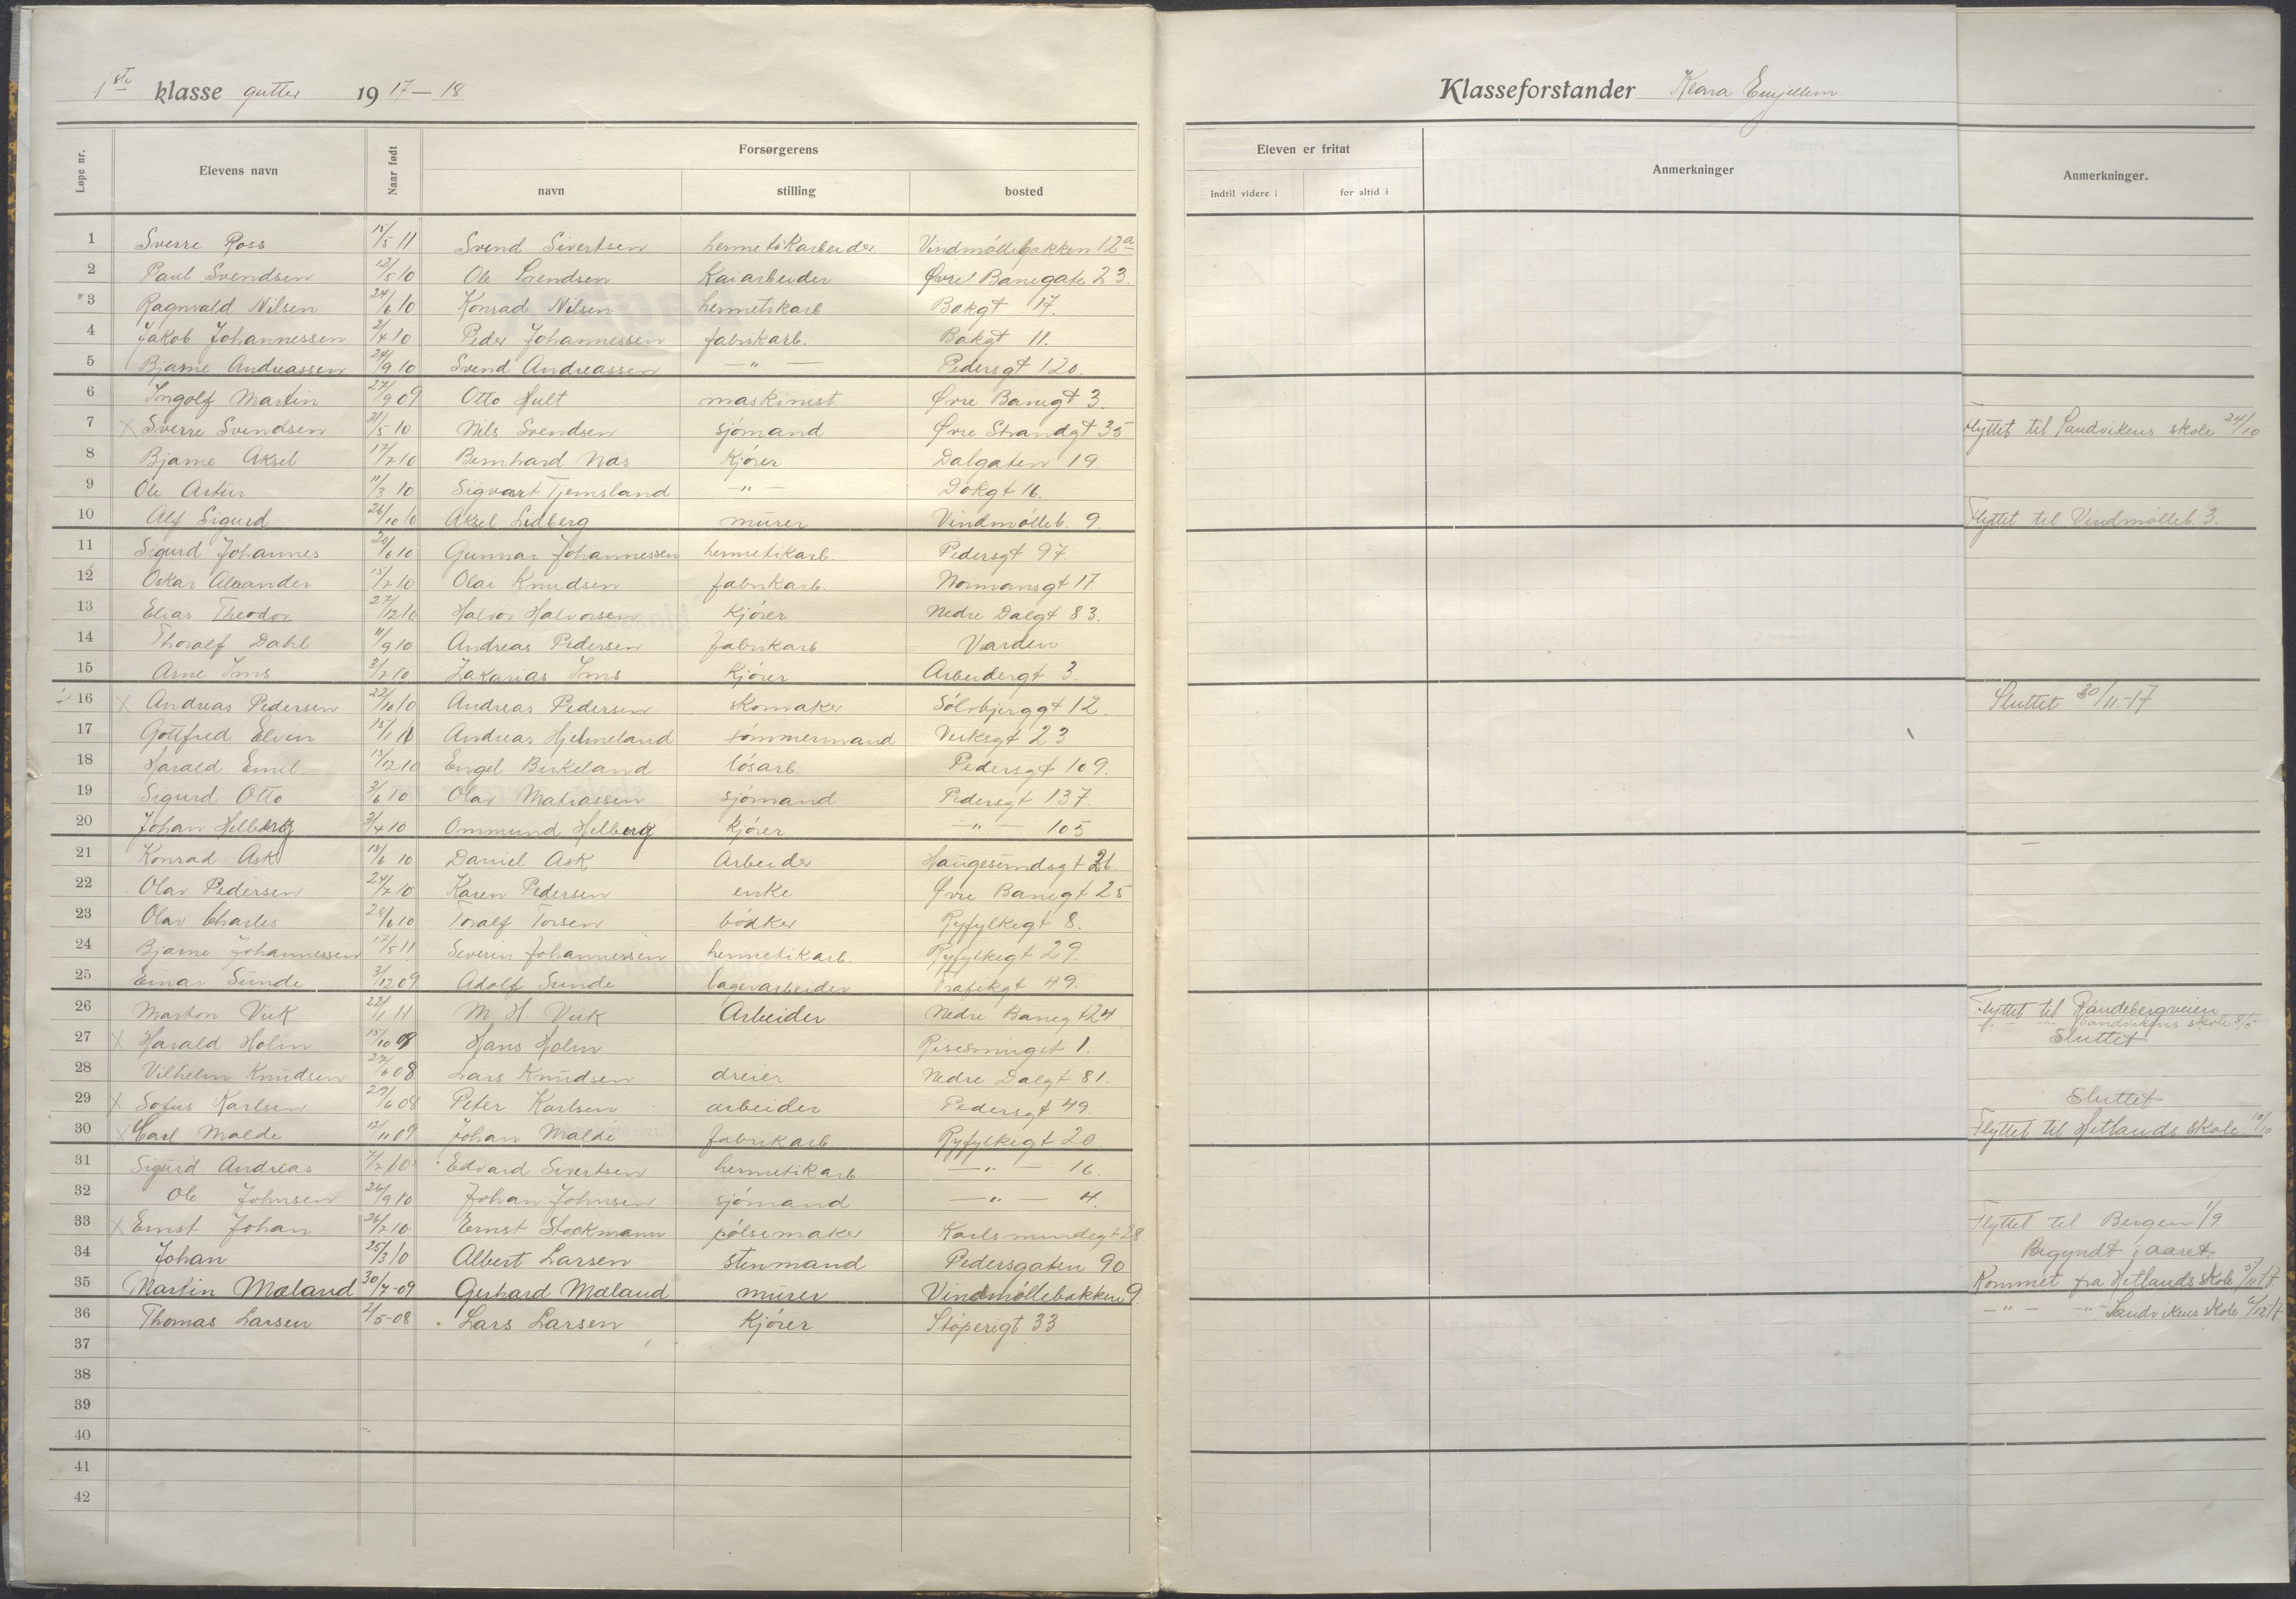 1ste klasse gutter 1917–18
Klasseforstander Klara
Løpe nr. Elevens navn Naar født Forsørgerens navn stilling bosted
Eleven er fritat indtil videre i for altid i Anmerkninger Anmerkninger.
1 Sverre Ross 15/5 11 Svend Sivertsen hermetikarbeider Vindmøllebakken 12a
2 Paul Svendsen 12/5 10 Ole Svendsen Kaiarbeider Øvre Banegate 23.
3 Ragnvald Nilsen 24/6 10 Konrad Nilsen hermetikarb Bakgt 17.
4 Jakob Johannessen 2/4 10 Peder Johannessen fabrikarb. Bakgt 11.
5 Bjarne Andreassen 24/9 10 Svend Andreassen —"— Pedersgt 120.
6 Ingolf Martin 27/9 09 Otto Hult maskinist Øvre Banegt 3.
7 x Sverre Svendsen 21/5 10 Nils Svendsen sjømand Øvre Strandgt 35. Flyttet til Sandvikens skole 24/10
8 Bjarne Aksel 17/7 10 Bernhard Nas Kjører Dalgaten 19.
9 Ole Artur 11/3 10 Sigvart Tjemsland —"— Dokgt 16.
10 Alf Sigurd 26/10 10 Aksel Lidberg murer Vindmølleb. 9 Flyttet til Vindmølleb. 3.
11 Sigurd Johannes 20/6 10 Gunnar Johannessen hermetikarb. Pedersgt 97
12 Oskar Alexander 15/7 10 Olai Knudsen fabrikarb. Normansgt 17.
13 Elias Theodor 27/12 10 Halvor Halvorsen Kjører Nedre Dalgt 83.
14 Thoralf Dahl 11/9 10 Andreas Pedersen fabrikarb Varden
15 Arne Ims 3/7 10 Zakarias Ims Kjører Arbeidergt 3.
16 x Andreas Pedersen 22/10 10 Andreas Pedersen skomaker Sølvbjerggt 12. Sluttet 30/11-17
17 Gottfred Elvin 15/1 11 Andreas Hjelmeland tømmermand Verksgt 23
18 Harald Emil 15/12 10 Engel Birkeland løsarb Pedersgt 109.
19 Sigurd Otto 3/6 10 Olav Matiassen sjømand Pedersgt 137.
20 Johan Helberg 3/4 10 Ommund Helberg Kjører —"— 105
21 Konrad Ask 18/6 10 Daniel Ask Arbeider Haugesundsgt 26
22 Olav Pedersen 24/7 10 Karen Pedersen enke Øvre Banegt 25
23 Olav Charles 28/6 10 Toralf Torsen bødker Ryfylkegt 8.
24 Bjarne Johannessen 17/5 11 Severin Johannessen hermetikarb Ryfylkegt 29.
25 Einar Sunde 3/12 09 Adolf Sunde lagerarbeider Trafikgt 49.
26 Marton Viik 22/1 11 M. H. Viik Arbeider Nedre Banegt 24 Flyttet til Randebergveien
"— —"— Sandvikens skole 8/5
27 x Harald Holm 15/10 08 Hans Holm 1. Sluttet
28 Vilhelm Knudsen 27/6 08 Lars Knudsen dreier Nedre Dalgt 81.
29 x Sofus Karlsen 29/6 08 Peter Karlsen arbeider Pedersgt 49. Sluttet
30 x Carl Malde 12/11 09 Johan Malde fabrikarb Ryfylkegt 20 Flyttet til Hetlands skole 10/10
31 Sigurd Andreas 7/7 10 Edvard Sivertsen hermetikarb —"— 16.
32 Ole Johnsen 26/9 10 Johan Johnsen sjømand —"— 4.
33 x Ernst Johan 26/7 10 Ernst Stockmann pølsemaker Karlsmindegt 28 Flyttet til Bergen 1/9
34 Johan 25/3 10 Albert Larsen stenmand Pedersgaten 90 Begyndt i aaret.
35 Martin Mæland 30/7-09 Gerhard Mæland murer Vindmøllebakken 9. Kommet fra Hetlands skole 5/11 17
36 Thomas Larsen 2/5-08 Lars Larsen Kjører Støperigt 33 —"— —"— Sandvikens skole 6/12 17
37
38
39
40
41
42